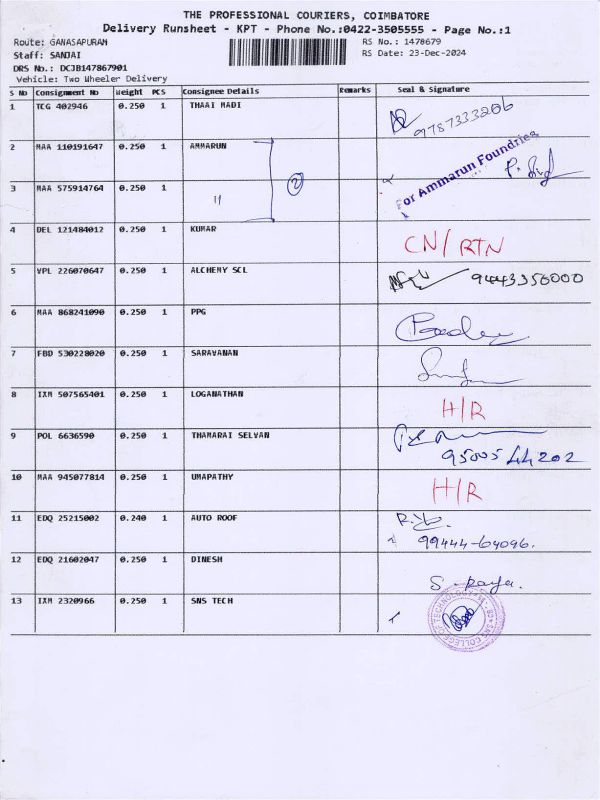 THE PROFESSIONAL COURIERS, COIMBATORE
Delivery Runsheet - KPT - Phone No.:0422-3505555 - Page No.:1
Route: GANASAPURAM
RS No.: 1478679
Staff: SANJAI
RS Date: 23-Dec-2024
DRS No.: DCJB147867901
Vehicle: Two Wheeler Delivery
S No Consignment No Weight PCS Consignee Details Remarks Seal & Signature
1 TCG 402946 0.250 1 THAAI MADI
9787333206
2 MAA 110191647 0.250 1 AMMARUN
For Ammarun Foundries
2
3 MAA 575914764 0.250 1 "
4 DEL 121484012 0.250 1 KUMAR CN/RTN
5 VPL 226070647 0.250 1 ALCHEMY SCL 9443356000
6 MAA 868241090 0.250 1 PPG
7 FBD 530228020 0.250 1 SARAVANAN
8 IXM 507565401 0.250 1 LOGANATHAN H/R
9 POL 6636590 0.250 1 THAMARAI SELVAN
95005 44202
10 MAA 945077814 0.250 1 UMAPATHY H/R
11 EDQ 25215002 0.240 1 AUTO ROOF
99444-64096.
12 EDQ 21602047 0.250 1 DINESH
13 IXM 2320966 0.250 1 SNS TECH
SNS COLLEGE OF TECHNOLOGY